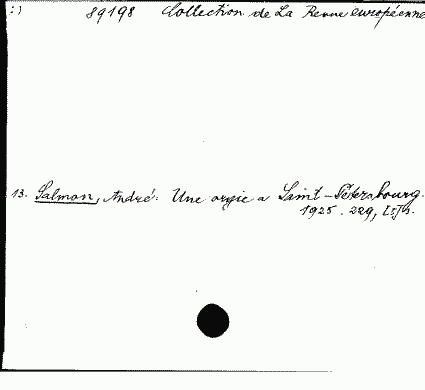 :) 89198 Collection de La Revue européenne
13. Salmon, André: Une orgie a Saint-Pétersbourg.
1925. 229, [5] h.